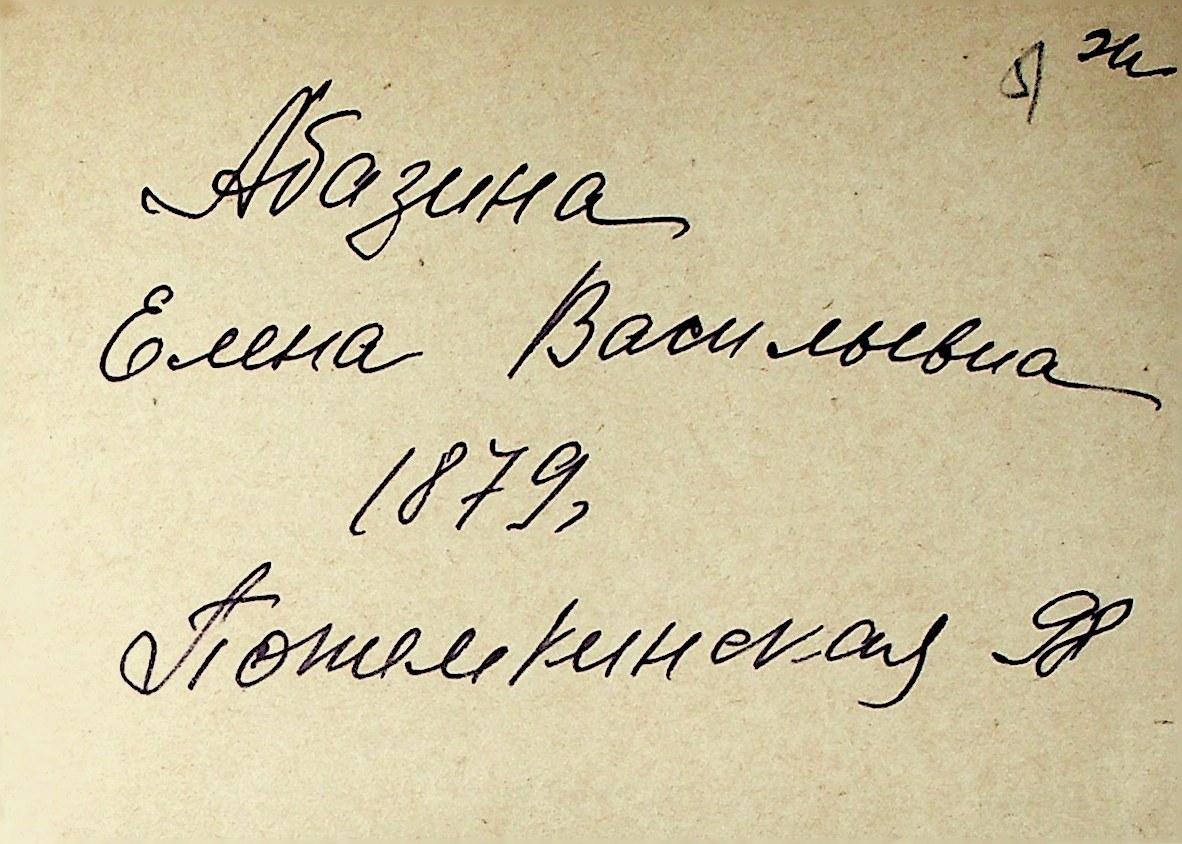 ж
Абазина
Елена Васильевна
1879,
Потемкинская